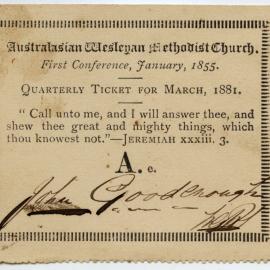 Australasian Wesleyan Methodist Church.
First Conference, January, 1855.
QUARTERLY TICKET FOR MARCH, 1881.
“ Call unto me, and I will answer thee, and
shew thee great and mighty things, which
thou knowest not.”—JEREMIAH xxxiii. 3.
A. e.
John Goodenough